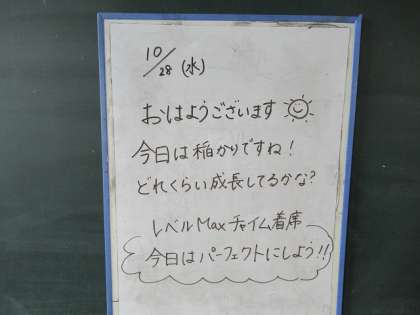 10/28 (水)
おはようございます
今日は稲かりですね!
どれくらい成長してるかな?
レベルMaxチャイム着席
今日はパーフェクトにしよう!!